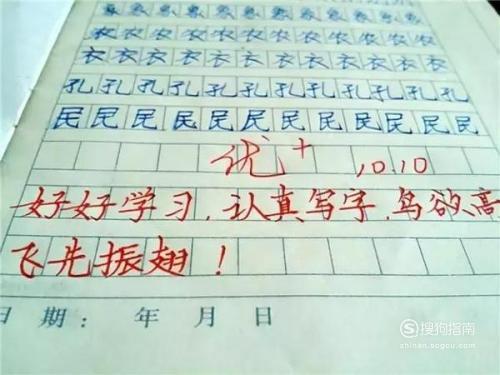 农农农农农农农农农农农
衣衣衣衣衣衣衣衣衣衣衣
孔孔孔孔孔孔孔孔孔孔孔孔
民民民民民民民民民民民
优+ 10.10
好好学习,认真写字,鸟欲高
飞先振翅!
日期: 年 月 日
搜狗指南
zhinan.sogou.com